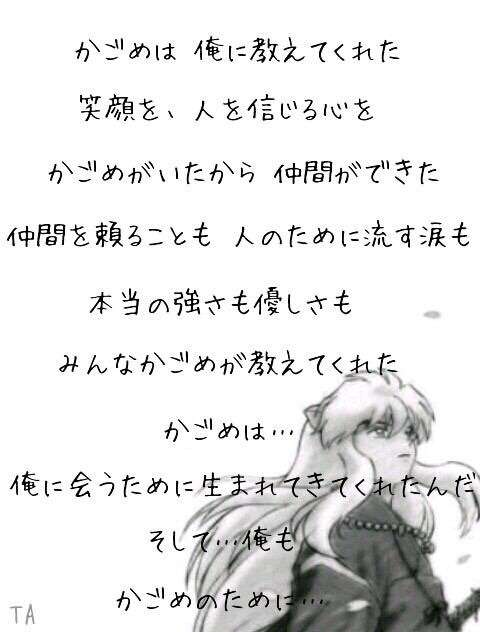 かごめは 俺に教えてくれた
笑顔を、人を信じる心を
かごめがいたから 仲間ができた
仲間を頼ることも 人のために流す涙も
本当の強さも優しさも
みんなかごめが教えてくれた
かごめは…
俺に会うために生まれてきてくれたんだ
そして…俺も
かごめのために…
TA